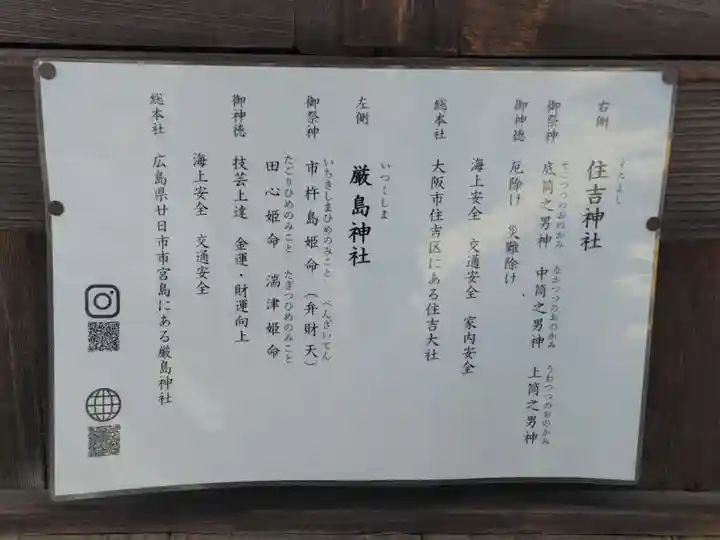 右側
すみよし
住吉神社
御祭神
そこつつのおのかみ なかつつのおのかみ うわつつのおのかみ
底筒之男神 中筒之男神 上筒之男神
御神徳 厄除け 災難除け、
海上安全 交通安全 家内安全
総本社 大阪市住吉区にある住吉大社
左側
いつくしま
厳島神社
御祭神
いちきしまひめのみこと べんざいてん
市杵島姫命（弁財天）
たごりひめのみこと たぎつひめのみこと
田心姫命 湍津姫命
御神徳 技芸上達 金運・財運向上
海上安全 交通安全
総本社 広島県廿日市市宮島にある厳島神社